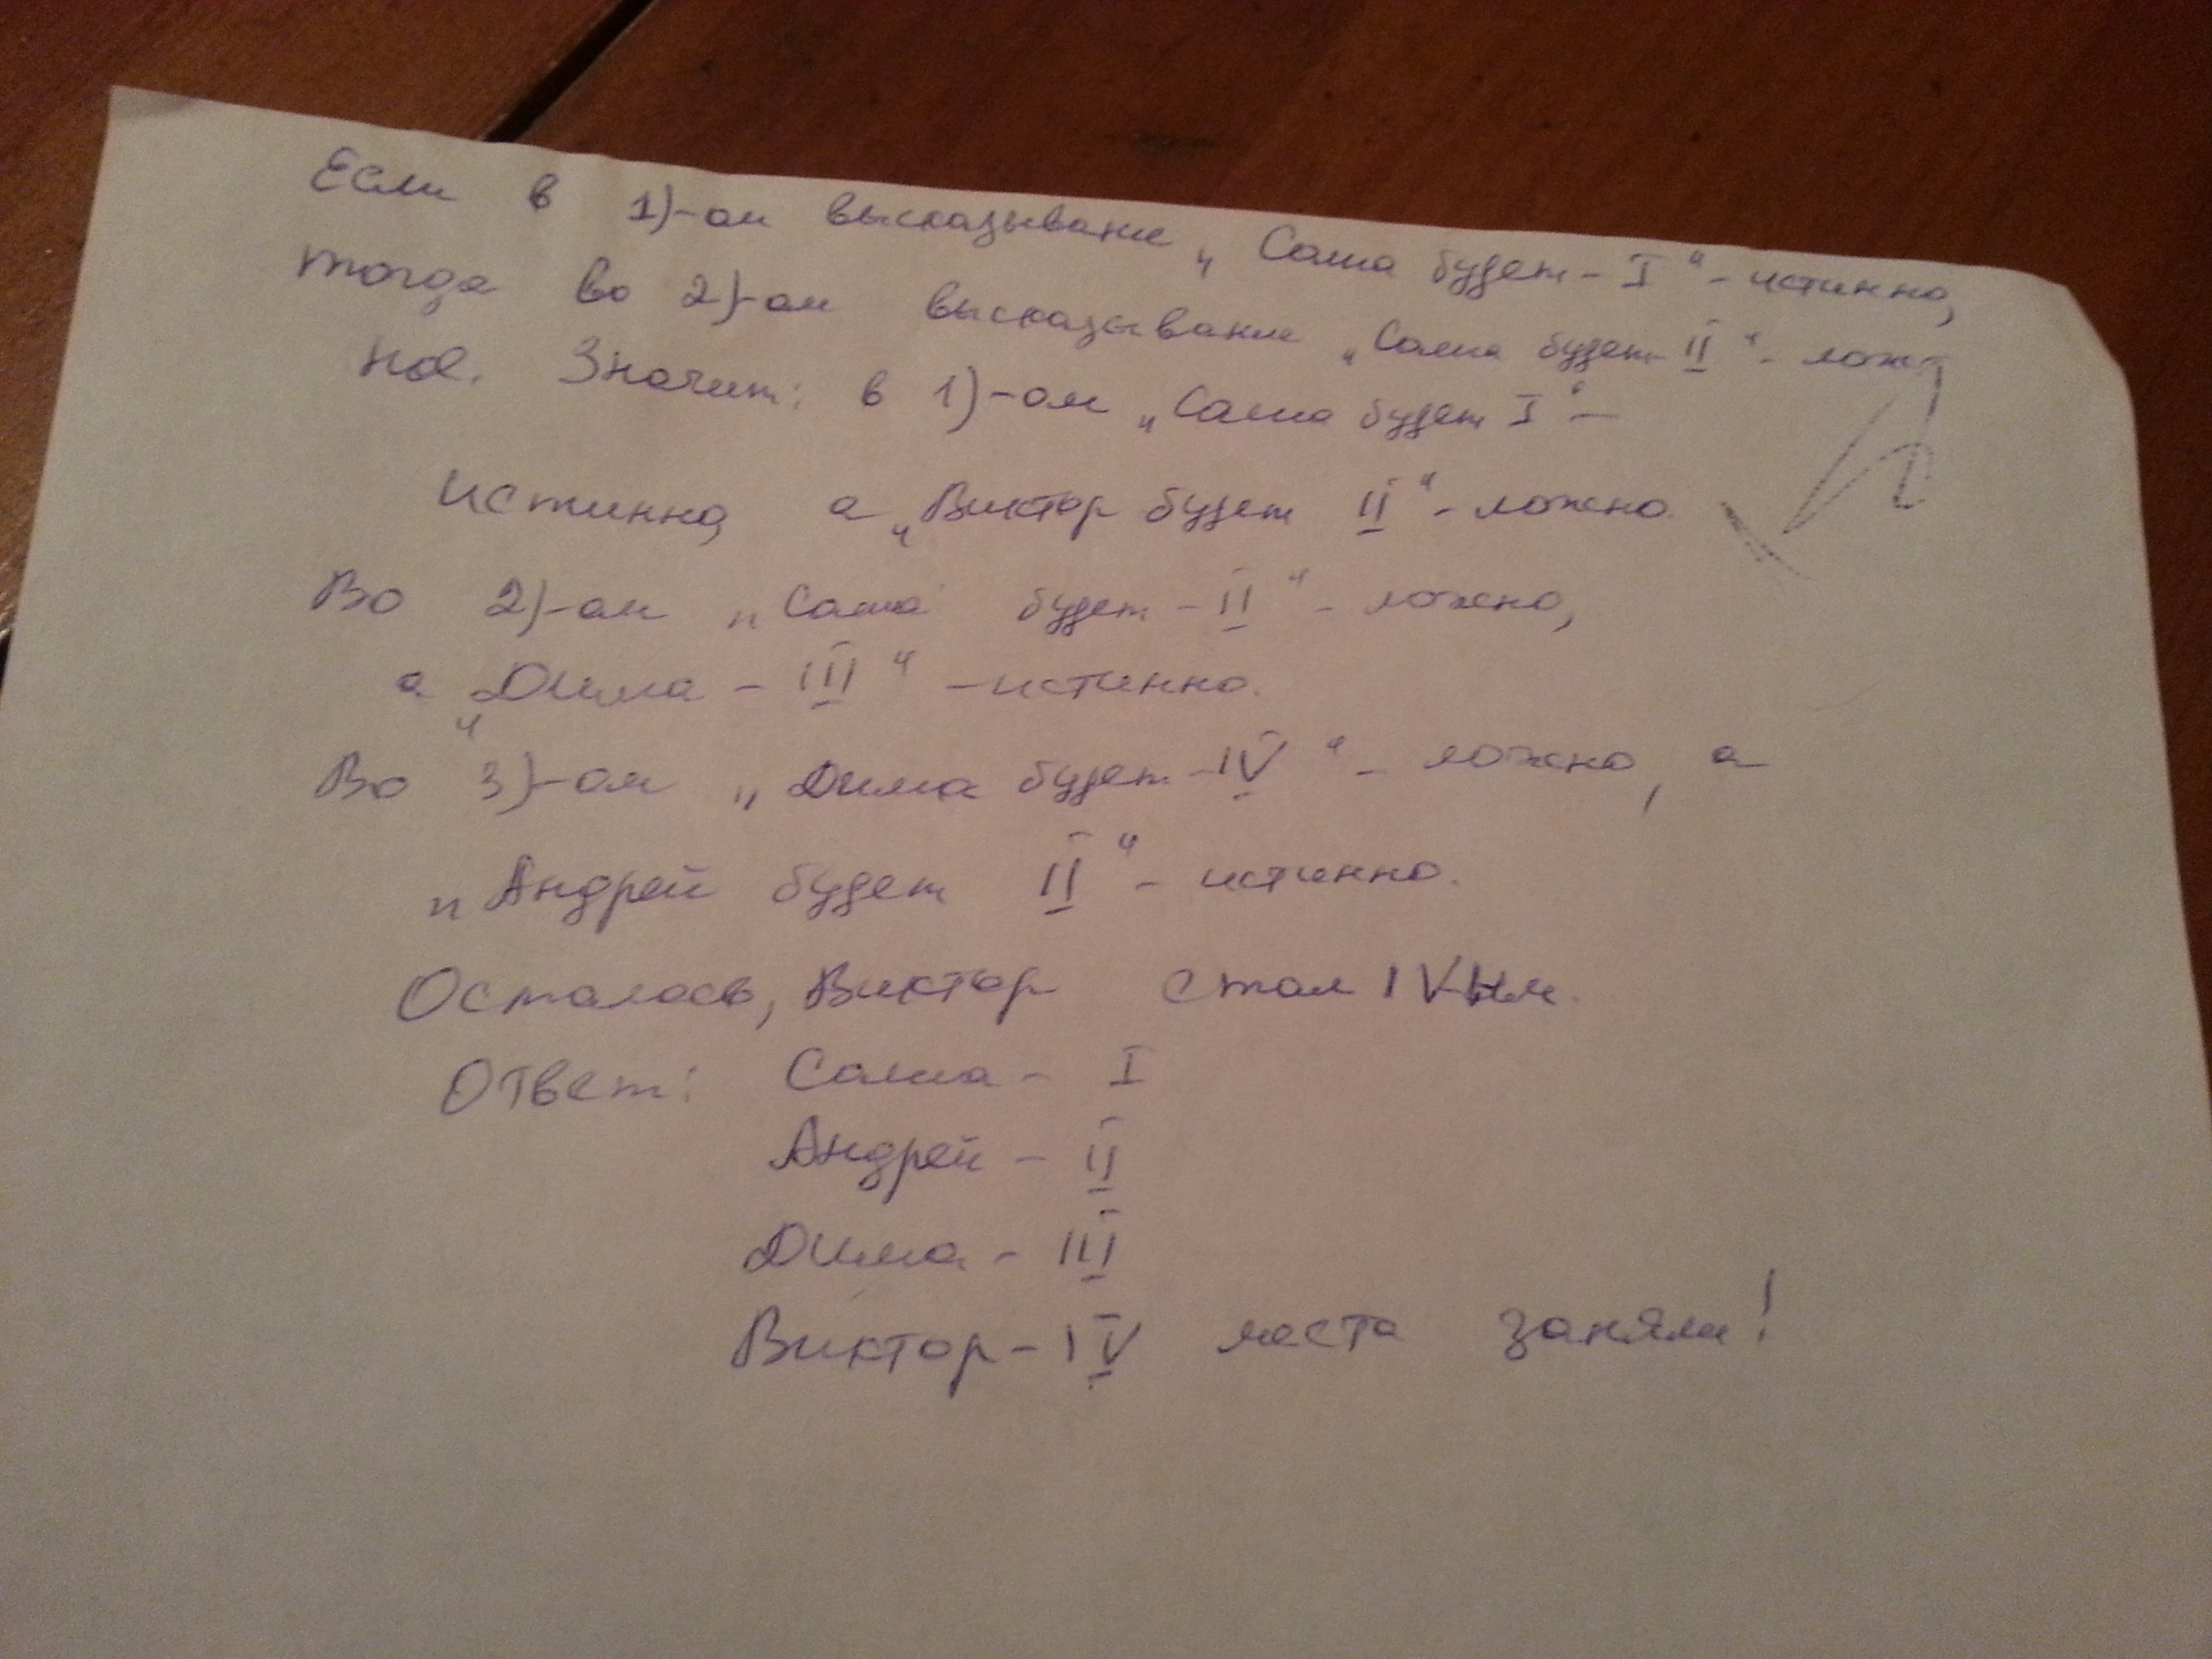 Если в 1)-ом высказывание „Саша будет - I" - истинно,
тогда во 2)-ом высказывание „Саша будет II" - лож-
ное. Значит: в 1)-ом „Саша будет I" -
истинно, а „Виктор будет II" - ложно.
Во 2)-ом „Саша будет - II" - ложно,
а „Дима - III" - истинно.
Во 3)-ом „Дима будет - IV" - ложно, а
„Андрей будет II" - истинно.
Осталось, Виктор стал IVым.
Ответ: Саша - I
Андрей - II
Дима - III
Виктор - IV места заняли!